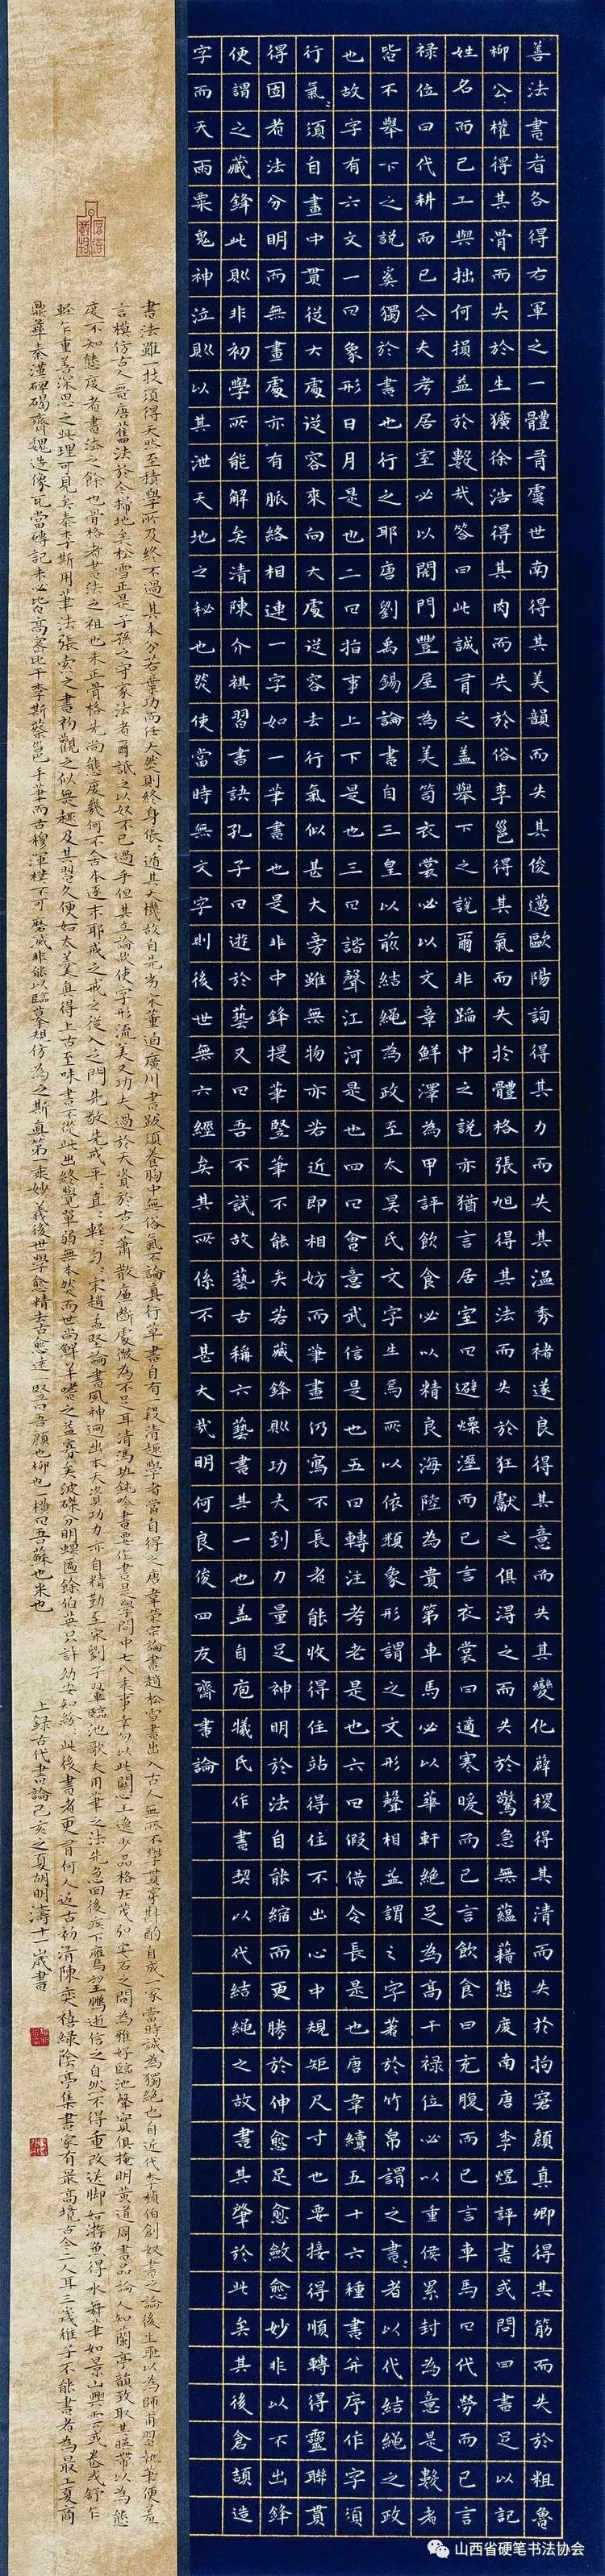 善法書者各得右軍之一體若虞世南得其美韻而失其俊邁歐陽詢得其力而失其溫秀褚遂良得其意而失其變化薛稷得其清而失於拘窘顏真卿得其筋而失於粗魯
柳公權得其骨而失於生獷徐浩得其肉而失於俗李邕得其氣而失於體格張旭得其法而失於狂獻之俱得之而失於驚急無蘊藉態度南唐李煜評書或問曰書足以記
姓名而已工與拙何損益於數哉答曰此誠有之盖舉下之說爾非蹈中之說亦猶言居室曰避燥溼而已言衣裳曰適寒暖而已言飲食曰充腹而已言車馬曰代勞而已言
祿位曰代耕而已今夫考居室必以閎門豐屋為美笥衣裳必以文章鮮澤為甲評飲食必以精良海陸為貴第車馬必以華軒絕足為高干祿位必以重侯累封為意是數者
皆不舉下之說奚獨於書也行之耶唐劉禹錫論書自三皇以前結繩為政至太昊氏文字生焉所以依類象形謂之文形聲相益謂之字著於竹帛謂之書〻者以代結繩之政
也故字有六文一曰象形日月是也二曰指事上下是也三曰諧聲江河是也四曰會意武信是也五曰轉注考老是也六曰假借令長是也唐韋續五十六種書并序作字須
行氣〻須自畫中貫從大處從容來向大處從容去行氣似甚大旁雖無物亦若近即相妨而筆畫仍寫不長者能收得住站得住不出心中規矩尺寸也要接得順轉得靈聯貫
得固者法分明而無畫處亦有脈絡相連一字如一筆書也是非中鋒提筆豎筆不能矣若藏鋒則功夫到力量足神明於法自能縮而更勝於伸愈足愈斂愈妙非以不出鋒
使謂之藏鋒此則非初學所能解矣清陳介祺習書訣孔子曰遊於藝又曰吾不試故藝古稱六藝書其一也盖自庖犧氏作書契以代結繩之故書其肇於此矣其後倉頡造
字而天雨粟鬼神泣則以其泄天地之秘也然使當時無文字則後世無六經矣其所係不甚大哉明何良俊四友齋書論
書法雖一技須得天然至積學所及終不過其本分若棄功而任天然則終身倀〻遁其天機故自先喪宋董逌廣川書跋須養胸中無俗氣不論真行草書自有一段清趣學者當自得之唐韋榮宗論書趙松雪書出入古人無所不學貫穿斟酌自成一家當時誠為獨絕也自近代李楨伯創奴書之論後生恥以為師甫習執筆便羞
言模仿古人晉唐舊法於今掃地矣松雪正是子孫之守家法者爾詆之以奴不已過乎但其立論欲使字形流美又功夫過於天資於古人蕭散廉斷處微為不足耳清馮班鈍吟書要作書是學問中七八乘事幸勿以此關心王逸少品格在茂弘安石之間為雅好臨池聲實俱掩明黃道周書品論人知蘭亭韻致取其腰帶以為態
度不知態度者書法之餘也骨格者書法之祖也未正骨格先尚態度幾何不舍本逐末耶戒之戒之從入之門先敬先戒平〻直〻輕〻勻〻宋趙孟堅論書風神迥出本天資功力亦自精勤至宋劉子翬臨池歌夫用筆之法先急回後疾下鷹望鵬逝信之自然不得重改送腳如游魚得水舞筆如景山興雲或卷或舒乍
輕乍重善深思之此理可見矣秦李斯用筆法張索之書初觀之似無趣及其習久便如太羹直得上古至味書不從此出終覺單弱無本然而世尚鮮羊嗜之益寡矣波磔分明螺匾餘伯英只許幼安知紛〻此後書者更有何人返古初清陳奕禧綠陰亭集書家有最高境古今二人耳三歲稚子不能書者為最上夏商
鼎彝秦漢碑碣齊魏造像瓦當磚記未必皆高密比干李斯蔡邕手筆而古穆渾樸不可磨滅非能以臨摹規仿為之斯真第一乘妙義後世學愈精去古愈遠一豎曰吾顏也柳也一橫曰吾蘇也米也
上錄古代書論己亥之夏胡明濤十一歲書
山西省硬笔书法协会